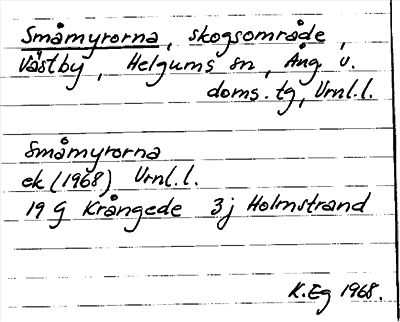 Småmyrorna, skogsområde,
Västby, Helgums sn, Ång v.
doms. tg, Vrnl.l.
Småmyrorna
ek (1968) Vrnl.l.
19 G Krångede 3j Holmstrand
K.Eg 1968.